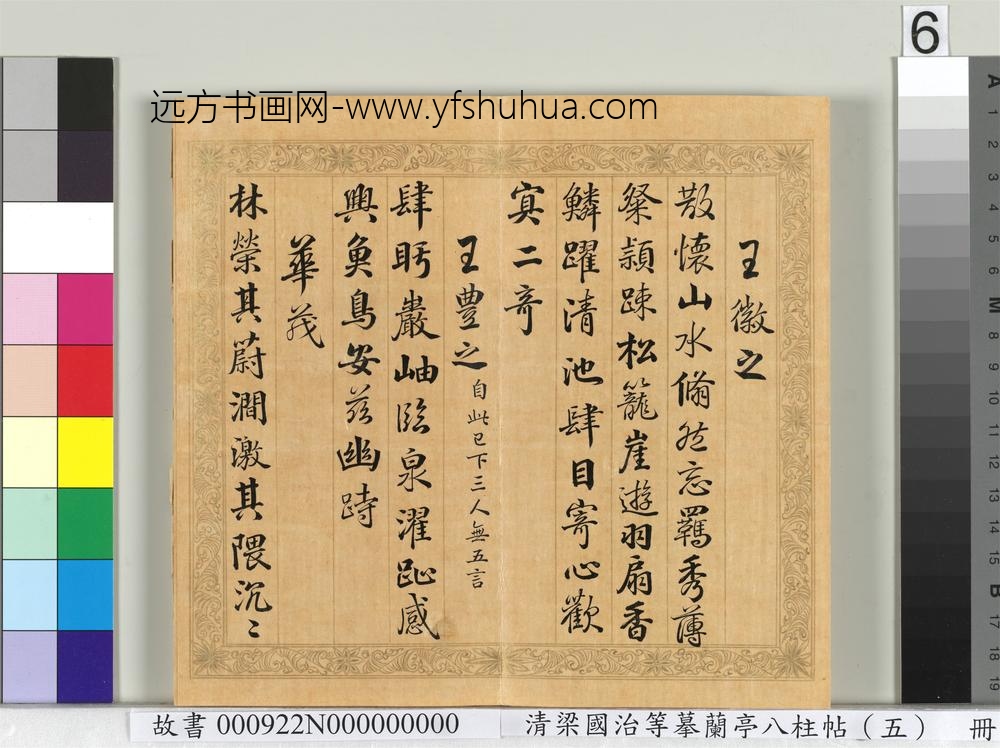 6
远方书画网-www.yfshuhua.com
王徽之
散懷山水翛然忘羈秀薄
粲頴踈松籠崖遊羽扇香
鱗躍清池肆目寄心歡
寘二竒
王豊之自此已下三人無五言
肆眄巖岫臨泉濯趾感
興魚鳥安茲幽跱
華茂
林榮其蔚澗激其隈沉〻
故書 000922N000000000
清梁國治等摹蘭亭八柱帖（五） 冊
A 1 2 3 4 5 6 M 8 9 10 11 12 13 14 15 B 17 18 19